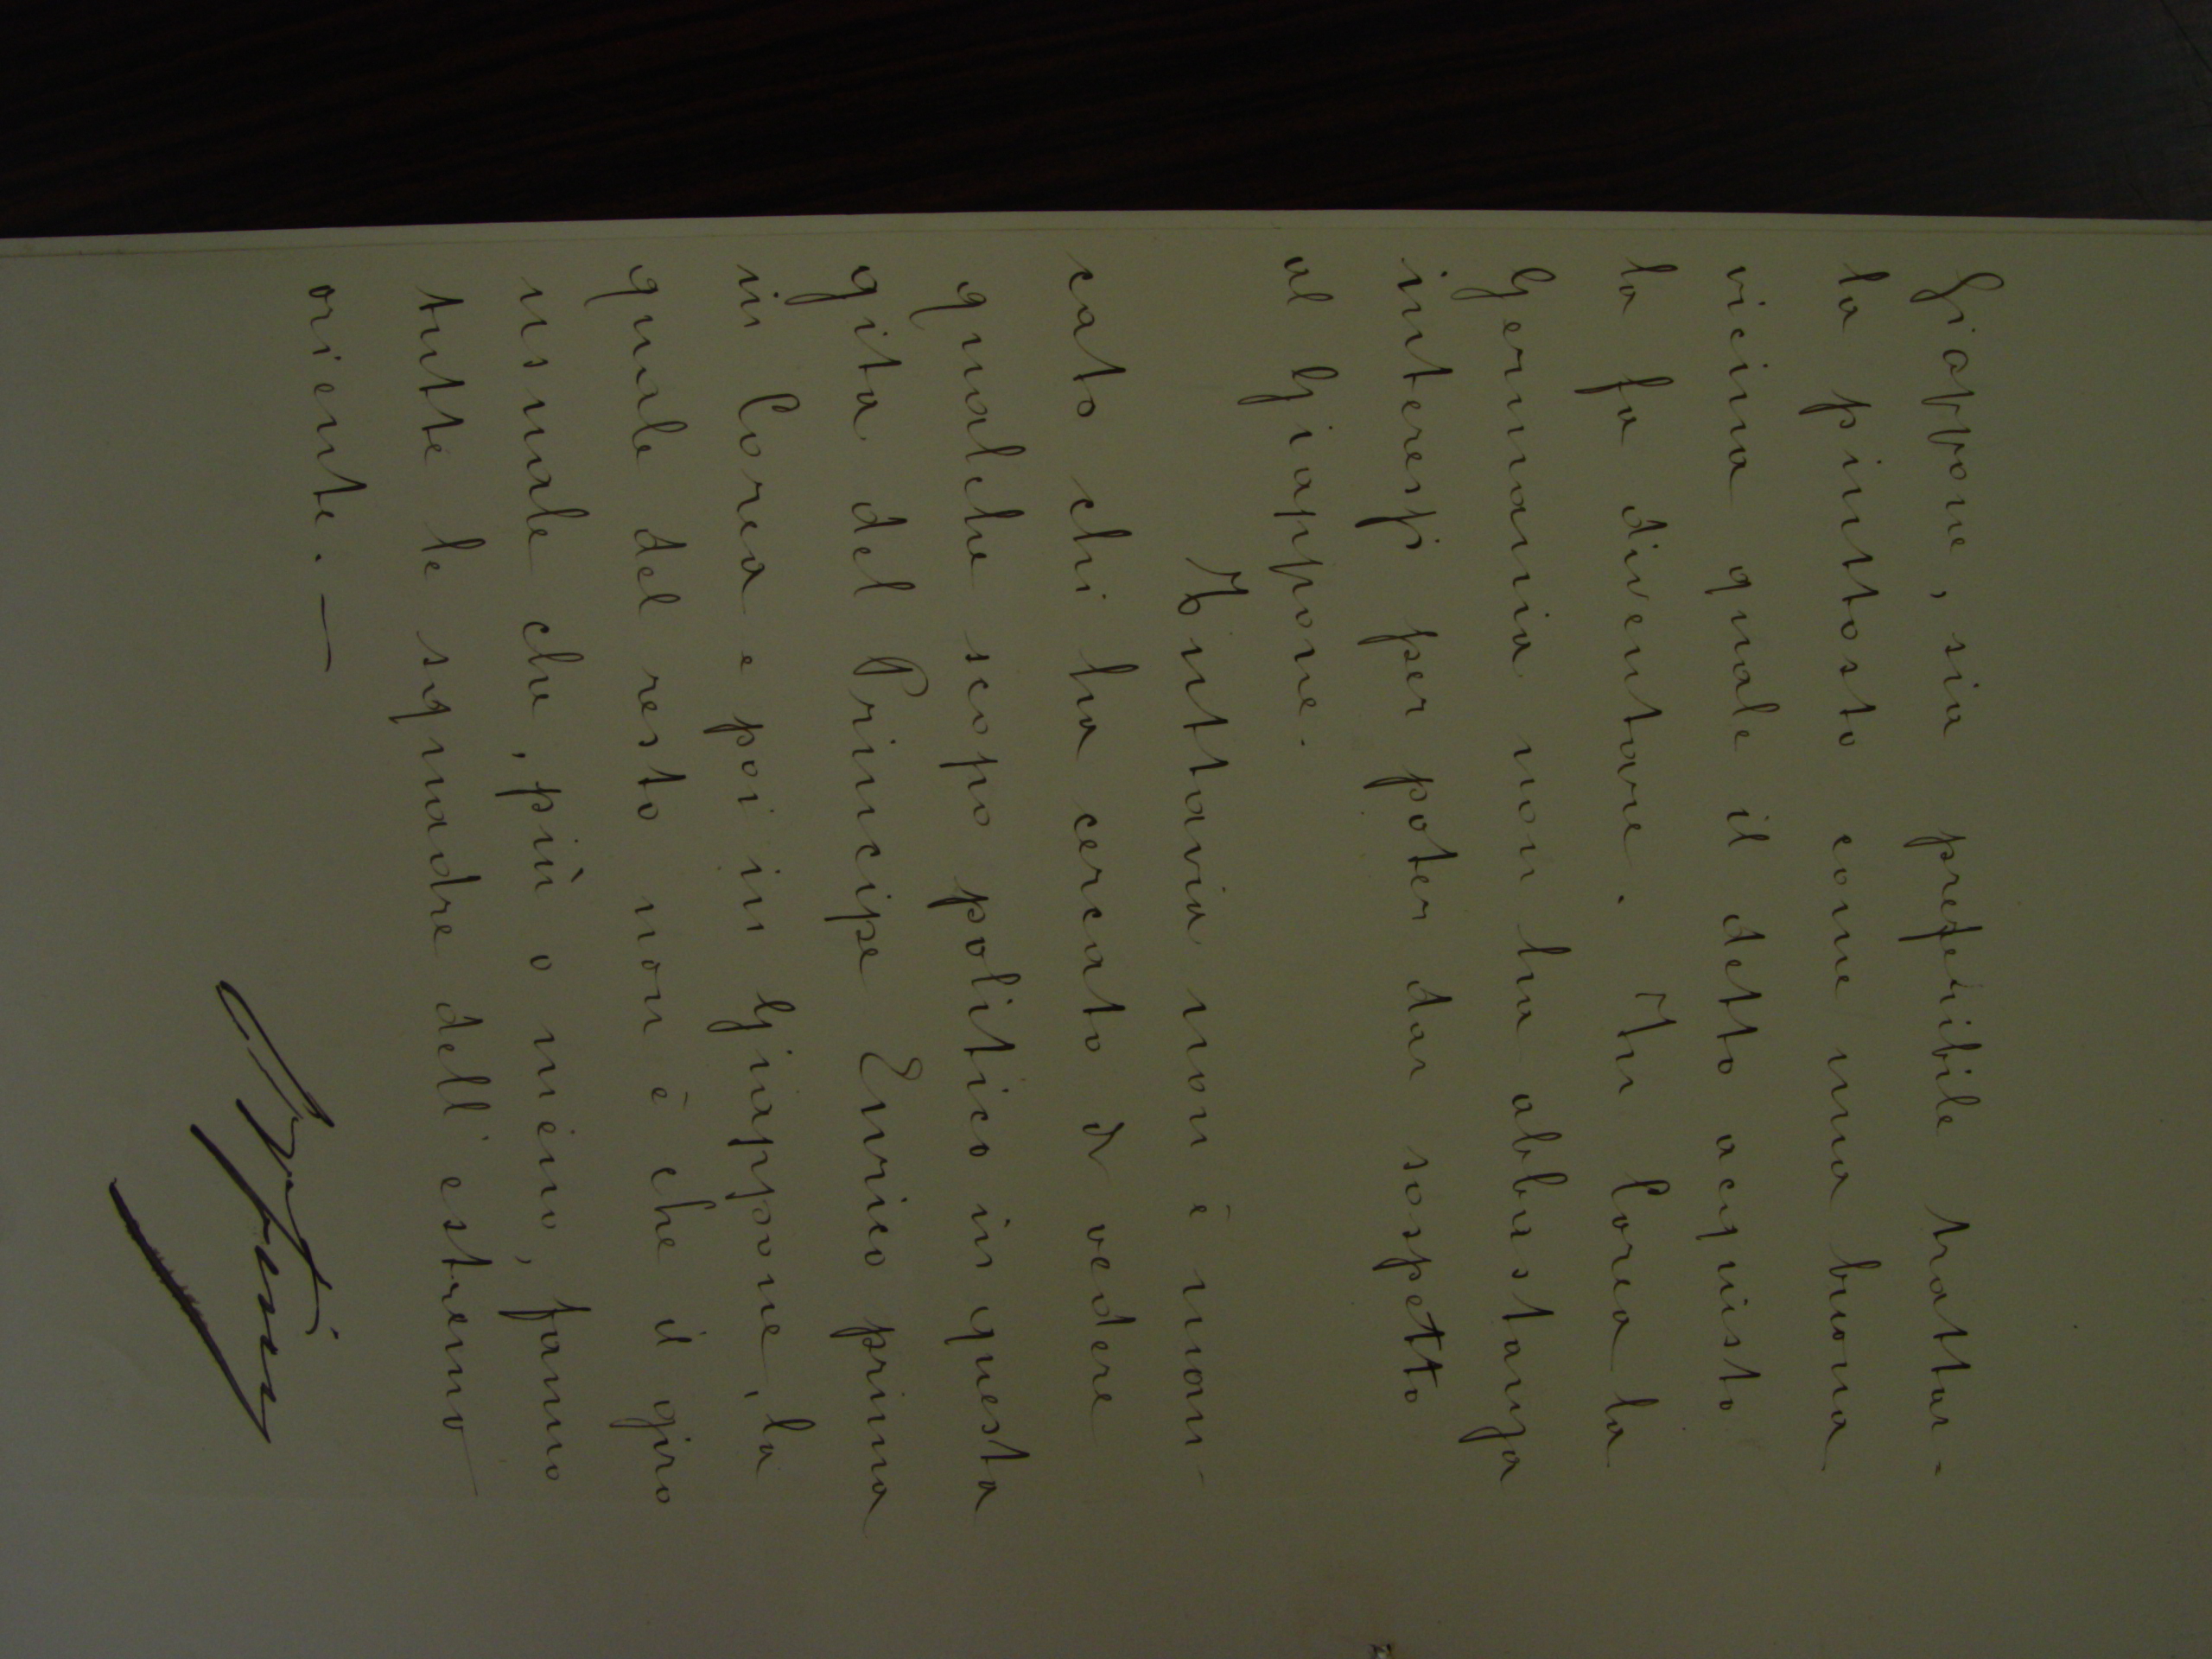 Giappone, sia preferibile trattar-
la piuttosto come una buona
vicina quale il detto acquisto
la fa diventare. In Corea la
Germania non ha abbastanza
interessi per poter dar sospetto
al Giappone.
Tuttavia non è man-
cato chi ha cercato di vedere
qualche scopo politico in questa
gita del Principe Enrico prima
in Corea e poi in Giappone, la
quale del resto non è che il giro
usuale che, più o meno, fanno
tutte le squadre dell'estremo
oriente. —